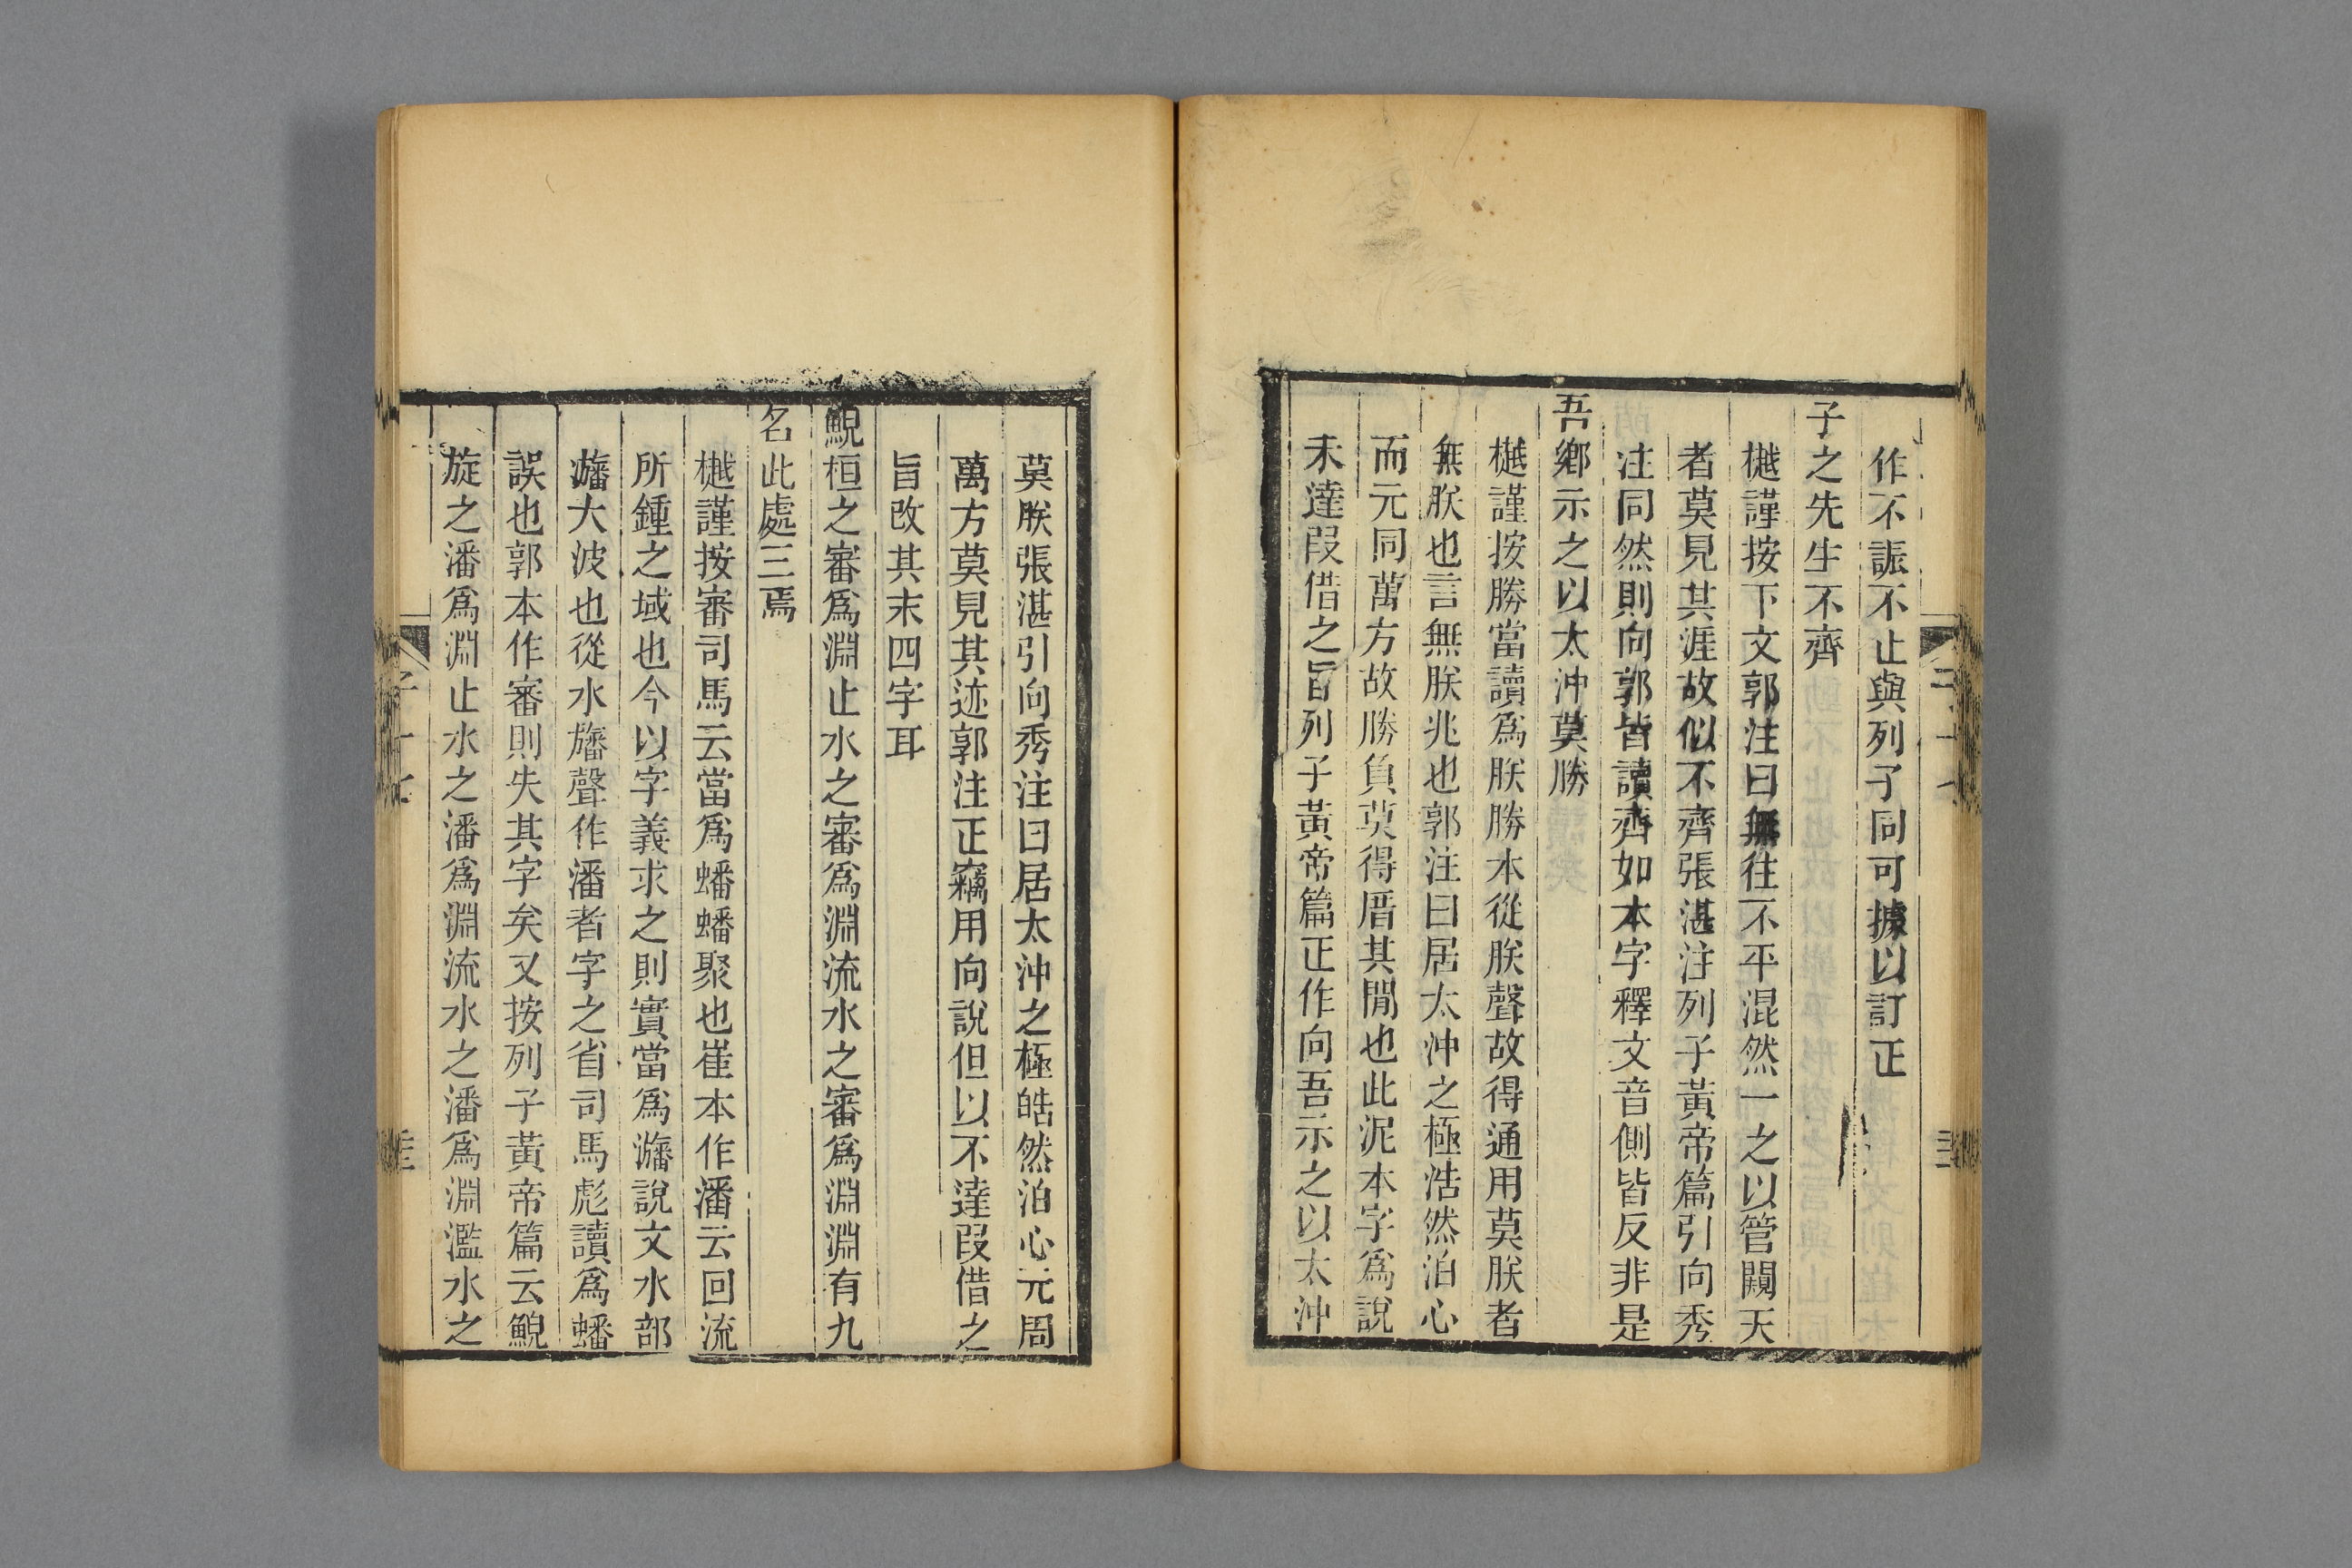 作不誫不止與列子同可據以訂正
子之先生不齊
樾謹按下文郭注曰無往不平混然一之以管闚天
者莫見其涯故似不齊張湛注列子黃帝篇引向秀
注同然則向郭皆讀齊如本字釋文音側皆反非是
吾鄉示之以太沖莫勝
樾謹按勝當讀爲朕勝本從朕聲故得通用莫朕者
無朕也言無朕兆也郭注曰居太沖之極浩然泊心
而元同萬方故勝負莫得厝其閒也此泥本字爲說
未達叚借之旨列子黃帝篇正作向吾示之以太沖
莫朕張湛引向秀注曰居太沖之極皓然泊心元周
萬方莫見其迹郭注正竊用向說但以不達叚借之
旨改其末四字耳
鯢桓之審爲淵止水之審爲淵流水之審爲淵淵有九
名此處三焉
樾謹按審司馬云當爲蟠蟠聚也崔本作潘云回流
所鍾之域也今以字義求之則實當爲瀋說文水部
瀋大波也從水旛聲作潘者字之省司馬彪讀爲蟠
誤也郭本作審則失其字矣又按列子黃帝篇云鯢
旋之潘爲淵止水之潘爲淵流水之潘爲淵濫水之
子十七